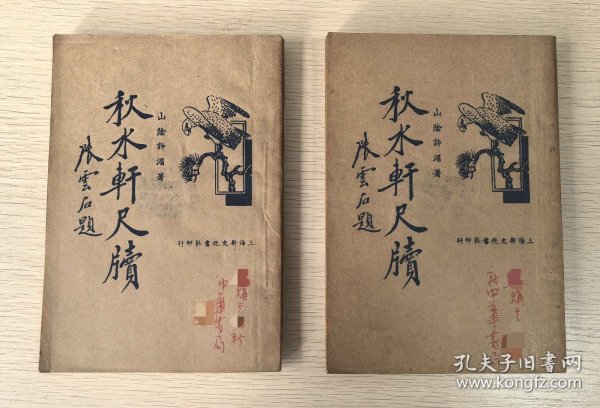 山陰許湄著
秋水軒尺牘
張雲石題
上海新文化書社印行
中華書局
山陰許湄著
秋水軒尺牘
張雲石題
上海新文化書社印行
新中華書
孔夫子旧书网
www.kongfz.com